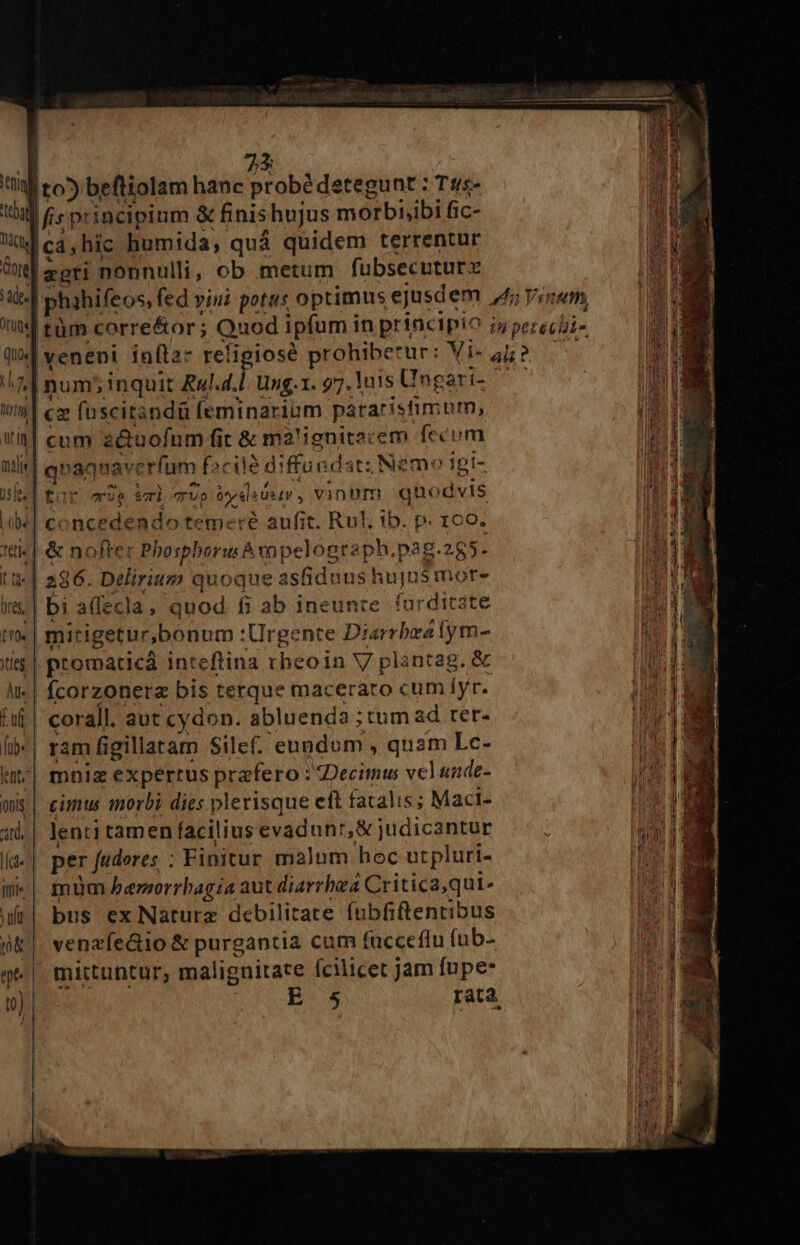 73
to) beſtiolam hanc probè detegunt: Tuſ-
ſis principium & finis hujus morbi, ibi ſic-
ca, hic humida, quâ quidem terrentur
ægri nonnulli, ob metum ſubsecuturæ
phthiſeos, ſed vini potus optimus ejusdem An Vinum,
tùm corrector; Quod ipſum in principio in petechi-
veneni inſtar religiosè prohibetur: Vi- alib?
num, inquit Rul.d.l. Ung. 1. 97. luis Ungari-
cæ ſuscitandū ſeminarium paratisſimum,
cum actuoſum ſit & malignitatem ſecum
quaquaverſum facilè diffundat: Nemo igi-
tur πῦρ ἐπὶ πῦρ ὀχετεύειν, vinum quodvis
concedendo temerè auſit. Rul. ib. p. 100.
& noſter Phosphorus Ampelograph. pag. 285.
286. Delirium quoque asſiduus hujus mor-
bi aſſecla, quod ſi ab ineunte ſurditate
mitigetur, bonum: Urgente Diarrhœâ ſym-
ptomaticâ inteſtina rheo in ▽ plantag. &
ſcorzoneræ bis terque macerato cum ſyr.
corall. aut cydon. abluenda; tum ad ter-
ram ſigillatam Sileſ. eundum, quam Le-
mniæ expertus præfero: Decimus vel unde-
cimus morbi dies plerisque eſt fatalis; Maci-
lenti tamen facilius evadunt, & judicantur
per ſudores: Finitur malum hoc utpluri-
mùm hæmorrhagia aut diarrhœâ Critica, qui-
bus ex Naturæ debilitate ſubſiſtentibus
venæſectio & purgantia cum ſucceſſu ſub-
mittuntur, malignitate ſcilicet jam ſupe-
E 5 rata